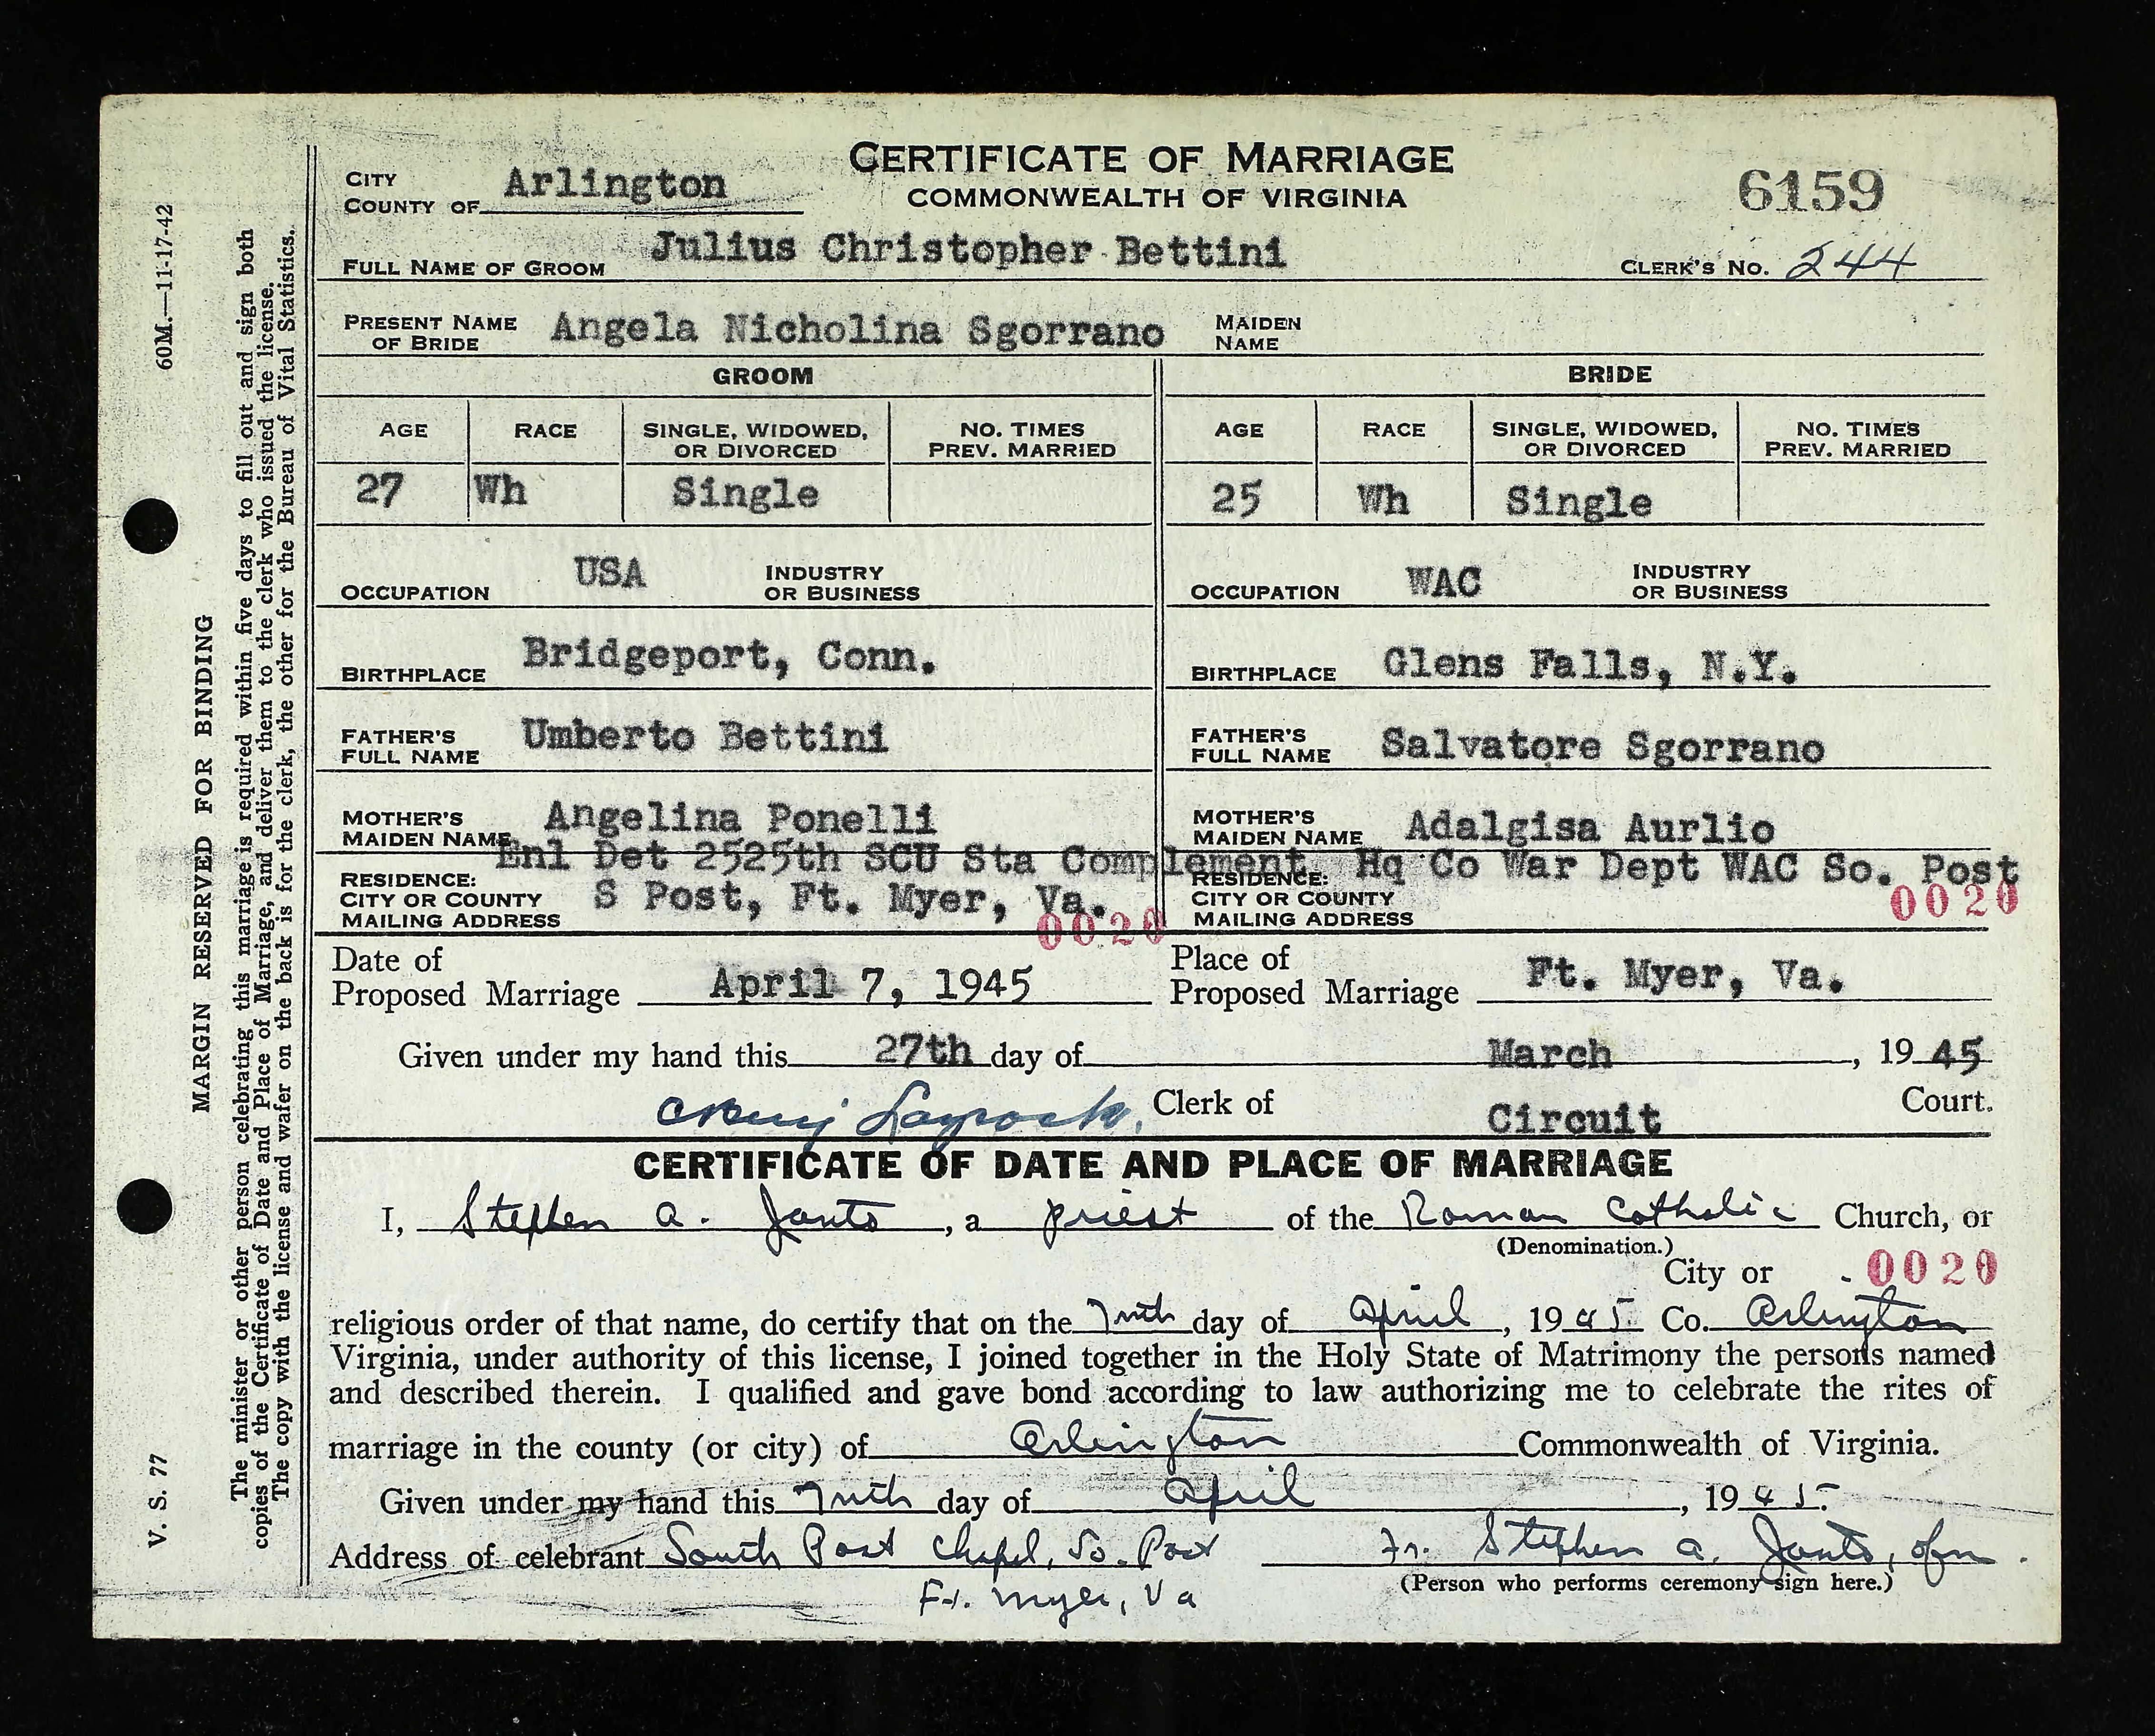 CERTIFICATE OF MARRIAGE
COMMONWEALTH OF VIRGINIA
6159
CITY
COUNTY OF Arlington
FULL NAME OF GROOM Julius Christopher Bettini CLERK'S NO. 244
PRESENT NAME OF BRIDE Angela Nicholina Sgorrano MAIDEN NAME
GROOM BRIDE
AGE RACE SINGLE, WIDOWED, OR DIVORCED NO. TIMES PREV. MARRIED AGE RACE SINGLE, WIDOWED, OR DIVORCED NO. TIMES PREV. MARRIED
27 Wh Single 25 Wh Single
OCCUPATION USA INDUSTRY OR BUSINESS OCCUPATION WAC INDUSTRY OR BUSINESS
BIRTHPLACE Bridgeport, Conn. BIRTHPLACE Glens Falls, N.Y.
FATHER'S FULL NAME Umberto Bettini FATHER'S FULL NAME Salvatore Sgorrano
MOTHER'S MAIDEN NAME Angelina Ponelli MOTHER'S MAIDEN NAME Adalgisa Aurlio
Enl Det 2525th SCU Sta Complement Hq Co War Dept WAC So. Post
RESIDENCE: CITY OR COUNTY MAILING ADDRESS S Post, Ft. Myer, Va. 0020 RESIDENCE: CITY OR COUNTY MAILING ADDRESS 0020
Date of Proposed Marriage April 7, 1945 Place of Proposed Marriage Ft. Myer, Va.
Given under my hand this 27th day of March, 1945
Clerk of Circuit Court.
CERTIFICATE OF DATE AND PLACE OF MARRIAGE
I, Stephen A. Janto, a priest of the Roman Catholic Church, or
(Denomination.)
City or 0020
religious order of that name, do certify that on the day of April, 1945 Co. Arlington
Virginia, under authority of this license, I joined together in the Holy State of Matrimony the persons named
and described therein. I qualified and gave bond according to law authorizing me to celebrate the rites of
marriage in the county (or city) of Arlington Commonwealth of Virginia.
Given under my hand this day of April, 1945
Address of celebrant South Post Chapel, So. Post Fr. Stephen A. Janto, ofm.
(Person who performs ceremony sign here.)
Ft. Myer, Va
60M.—11-17-42
MARGIN RESERVED FOR BINDING
V. S. 77
The minister or other person celebrating this marriage is required within five days to fill out and sign both
copies of the Certificate of Date and Place of Marriage, and deliver them to the clerk who issued the license.
The copy with the license and wafer on the back is for the clerk, the other for the Bureau of Vital Statistics.